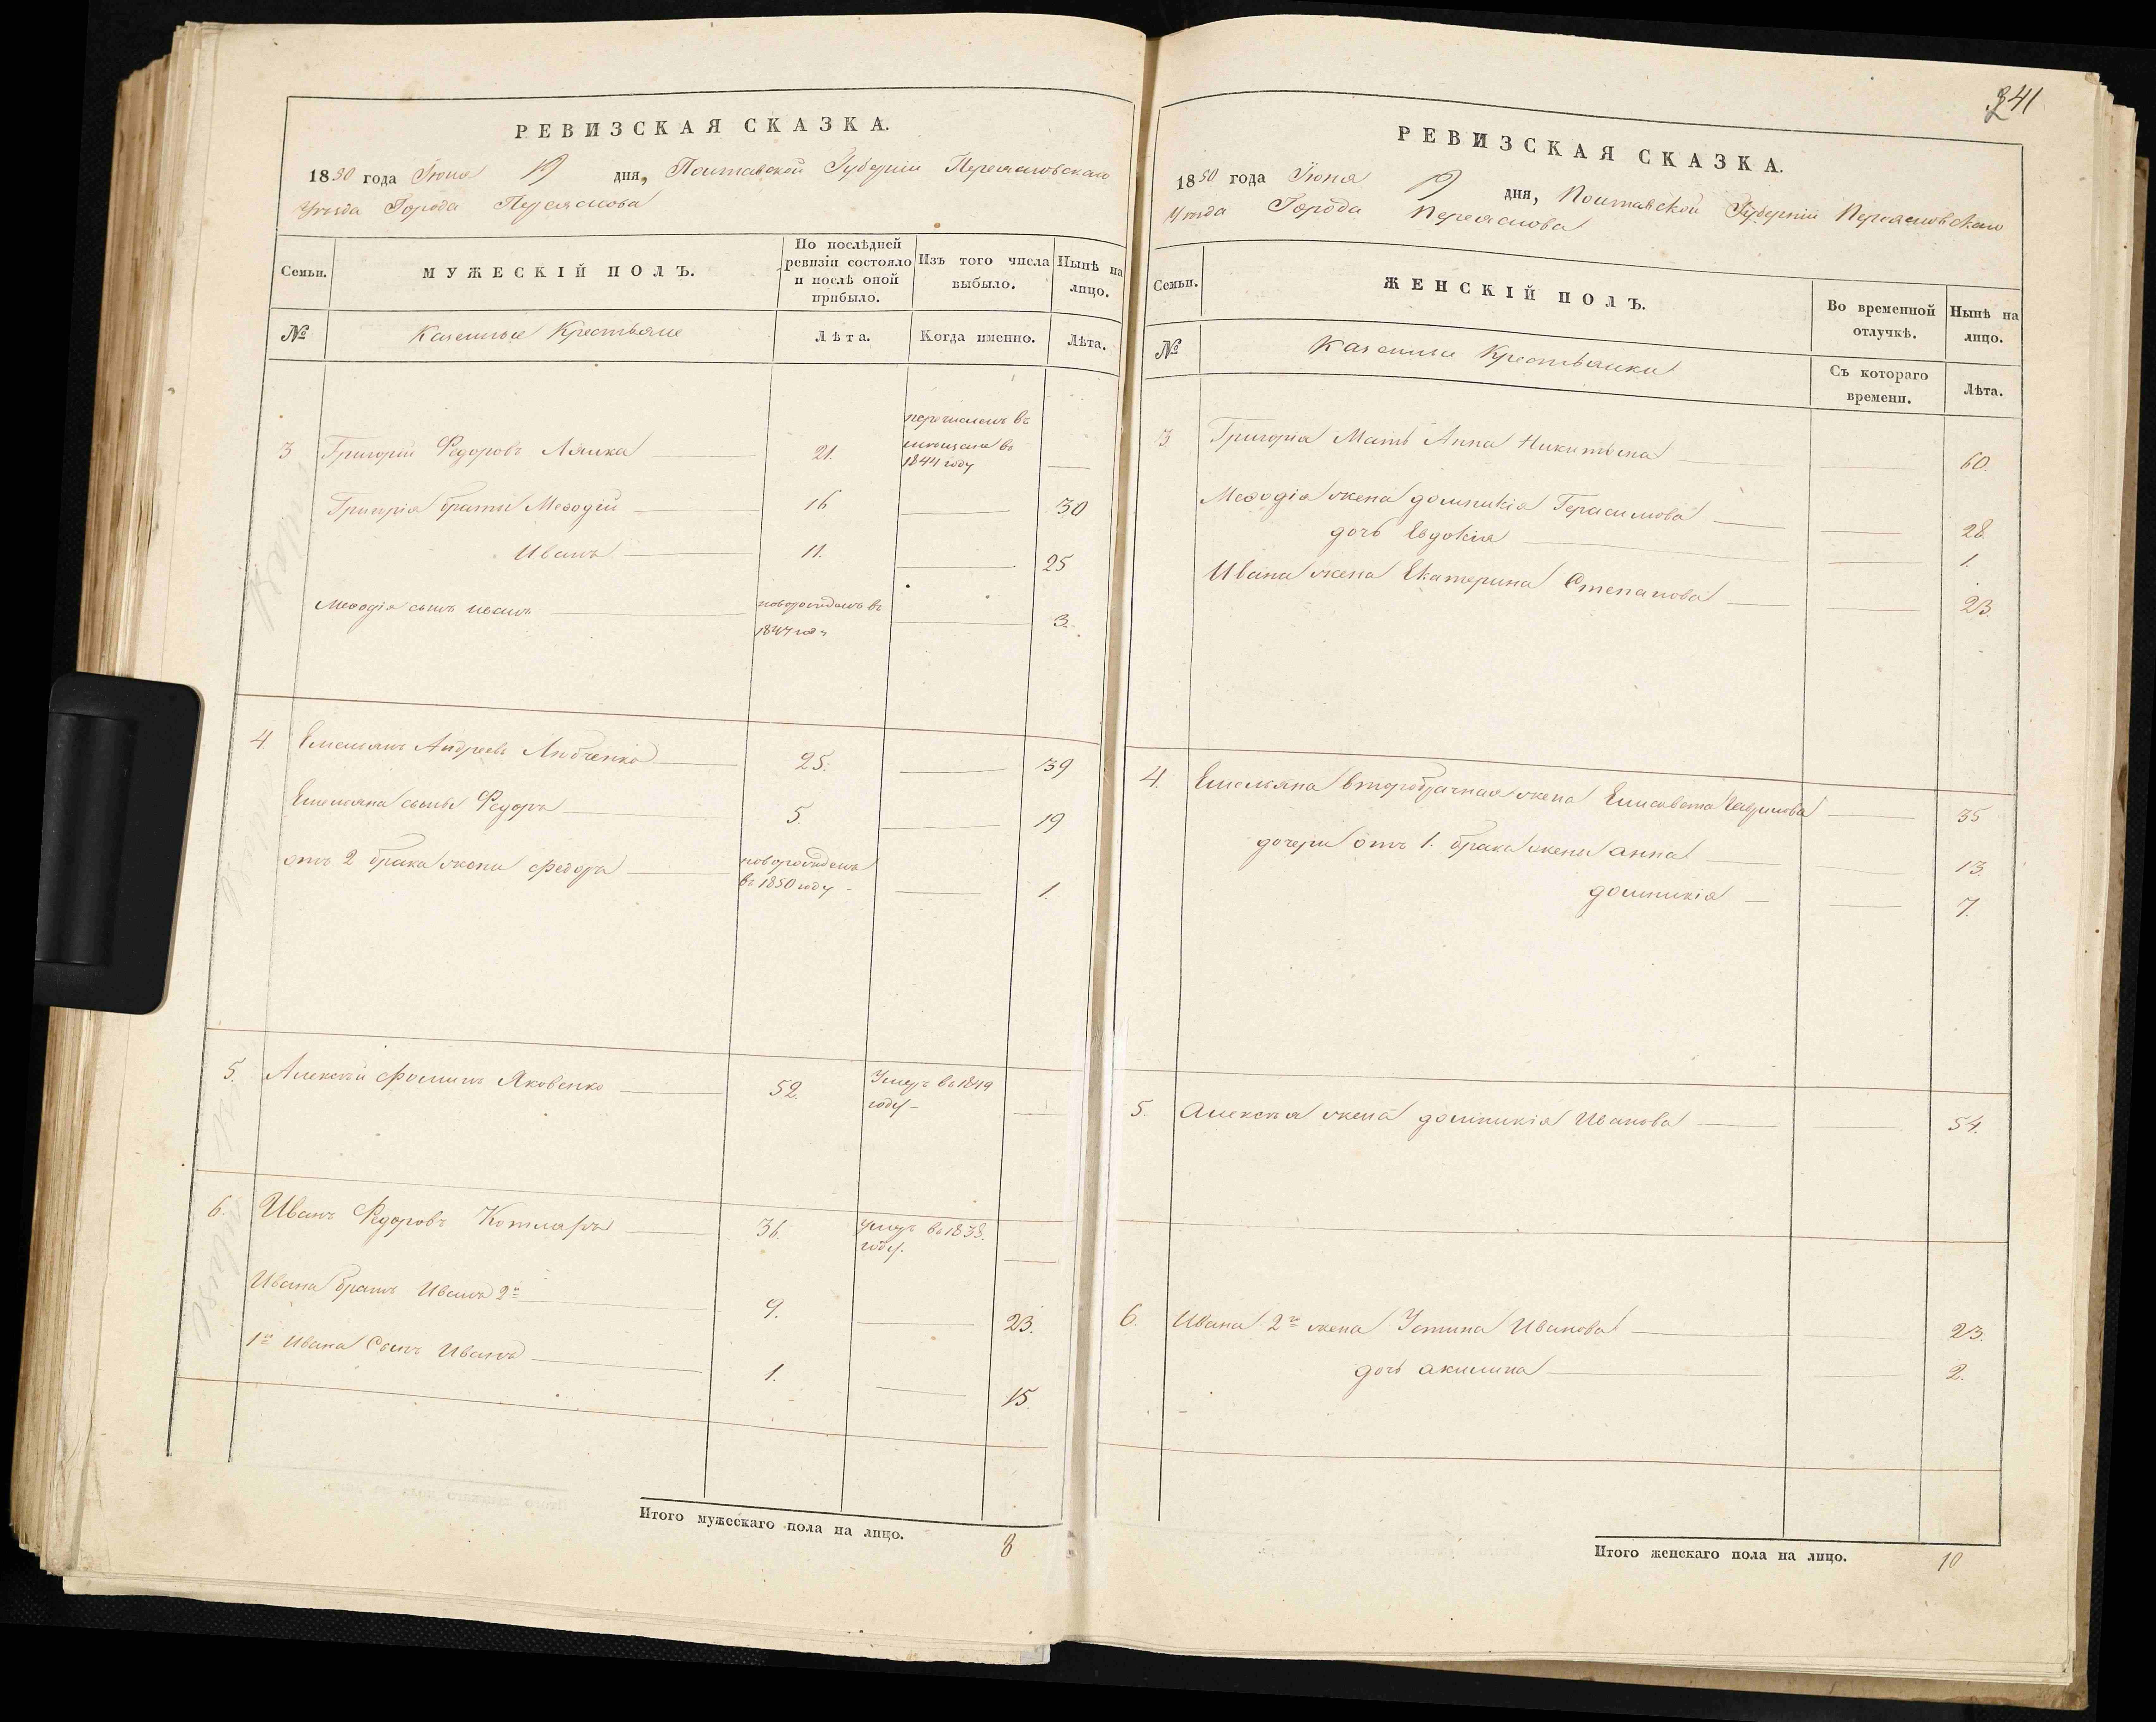 РЕВИЗСКАЯ СКАЗКА.
1850 года Іюня 19 дня, Полтавской Губерніи Переяславскаго
Уѣзда Города Переяслова
Семьи.
МУЖЕСКІЙ ПОЛЪ.
По послѣдней ревизіи состояло и послѣ оной прибыло.
Изъ того числа выбыло.
Нынѣ на лицо.
№
Казенные Крестьяне
Лѣта.
Когда именно.
Лѣта.
3 Григорій Федоровъ Ляшка 21. перечисленъ въ
мѣщане въ
1844 году
Григорія братья Меѳодій 16 30
Иванъ 11. 25
Меѳодія сынъ Иванъ новорожденъ въ
1847 году 3.
4. Емельянъ Андреевъ Любченко 25. 39
Емельяна сынъ Федоръ 5. 19
отъ 2 брака жены Федоръ новорожденъ
въ 1850 году 1.
5. Алексѣй Фоминъ Яковенко 52. Умеръ въ 1849
году
6. Иванъ Федоровъ Котляръ 36. умеръ въ 1838.
году.
Ивана братъ Иванъ 2й 9. 23.
1го Ивана Сынъ Иванъ 1. 15.
Итого мужескаго пола на лицо. 8
341
РЕВИЗСКАЯ СКАЗКА.
1850 года Іюня 19 дня, Полтавской Губерніи Переяславскаго
Уѣзда Города Переяслова
Семьи.
ЖЕНСКІЙ ПОЛЪ.
Во временной отлучкѣ.
Нынѣ на лицо.
№
Казенные Крестьянки
Съ котораго времени.
Лѣта.
3 Григорія Мать Анна Никитьина 60.
Меѳодія жена домникія Герасимова 28.
дочь Евдокія 1.
Ивана жена Екатерина Степанова 23.
4. Емельяна второбрачная жена Елисавета Гаврилова 35
дочери отъ 1. брака жены анна 13.
домникія 7.
5. Алексѣя жена домникія Иванова 54.
6. Ивана 2го жена Устина Иванова 23.
дочь акилина 2.
Итого женскаго пола на лицо. 10